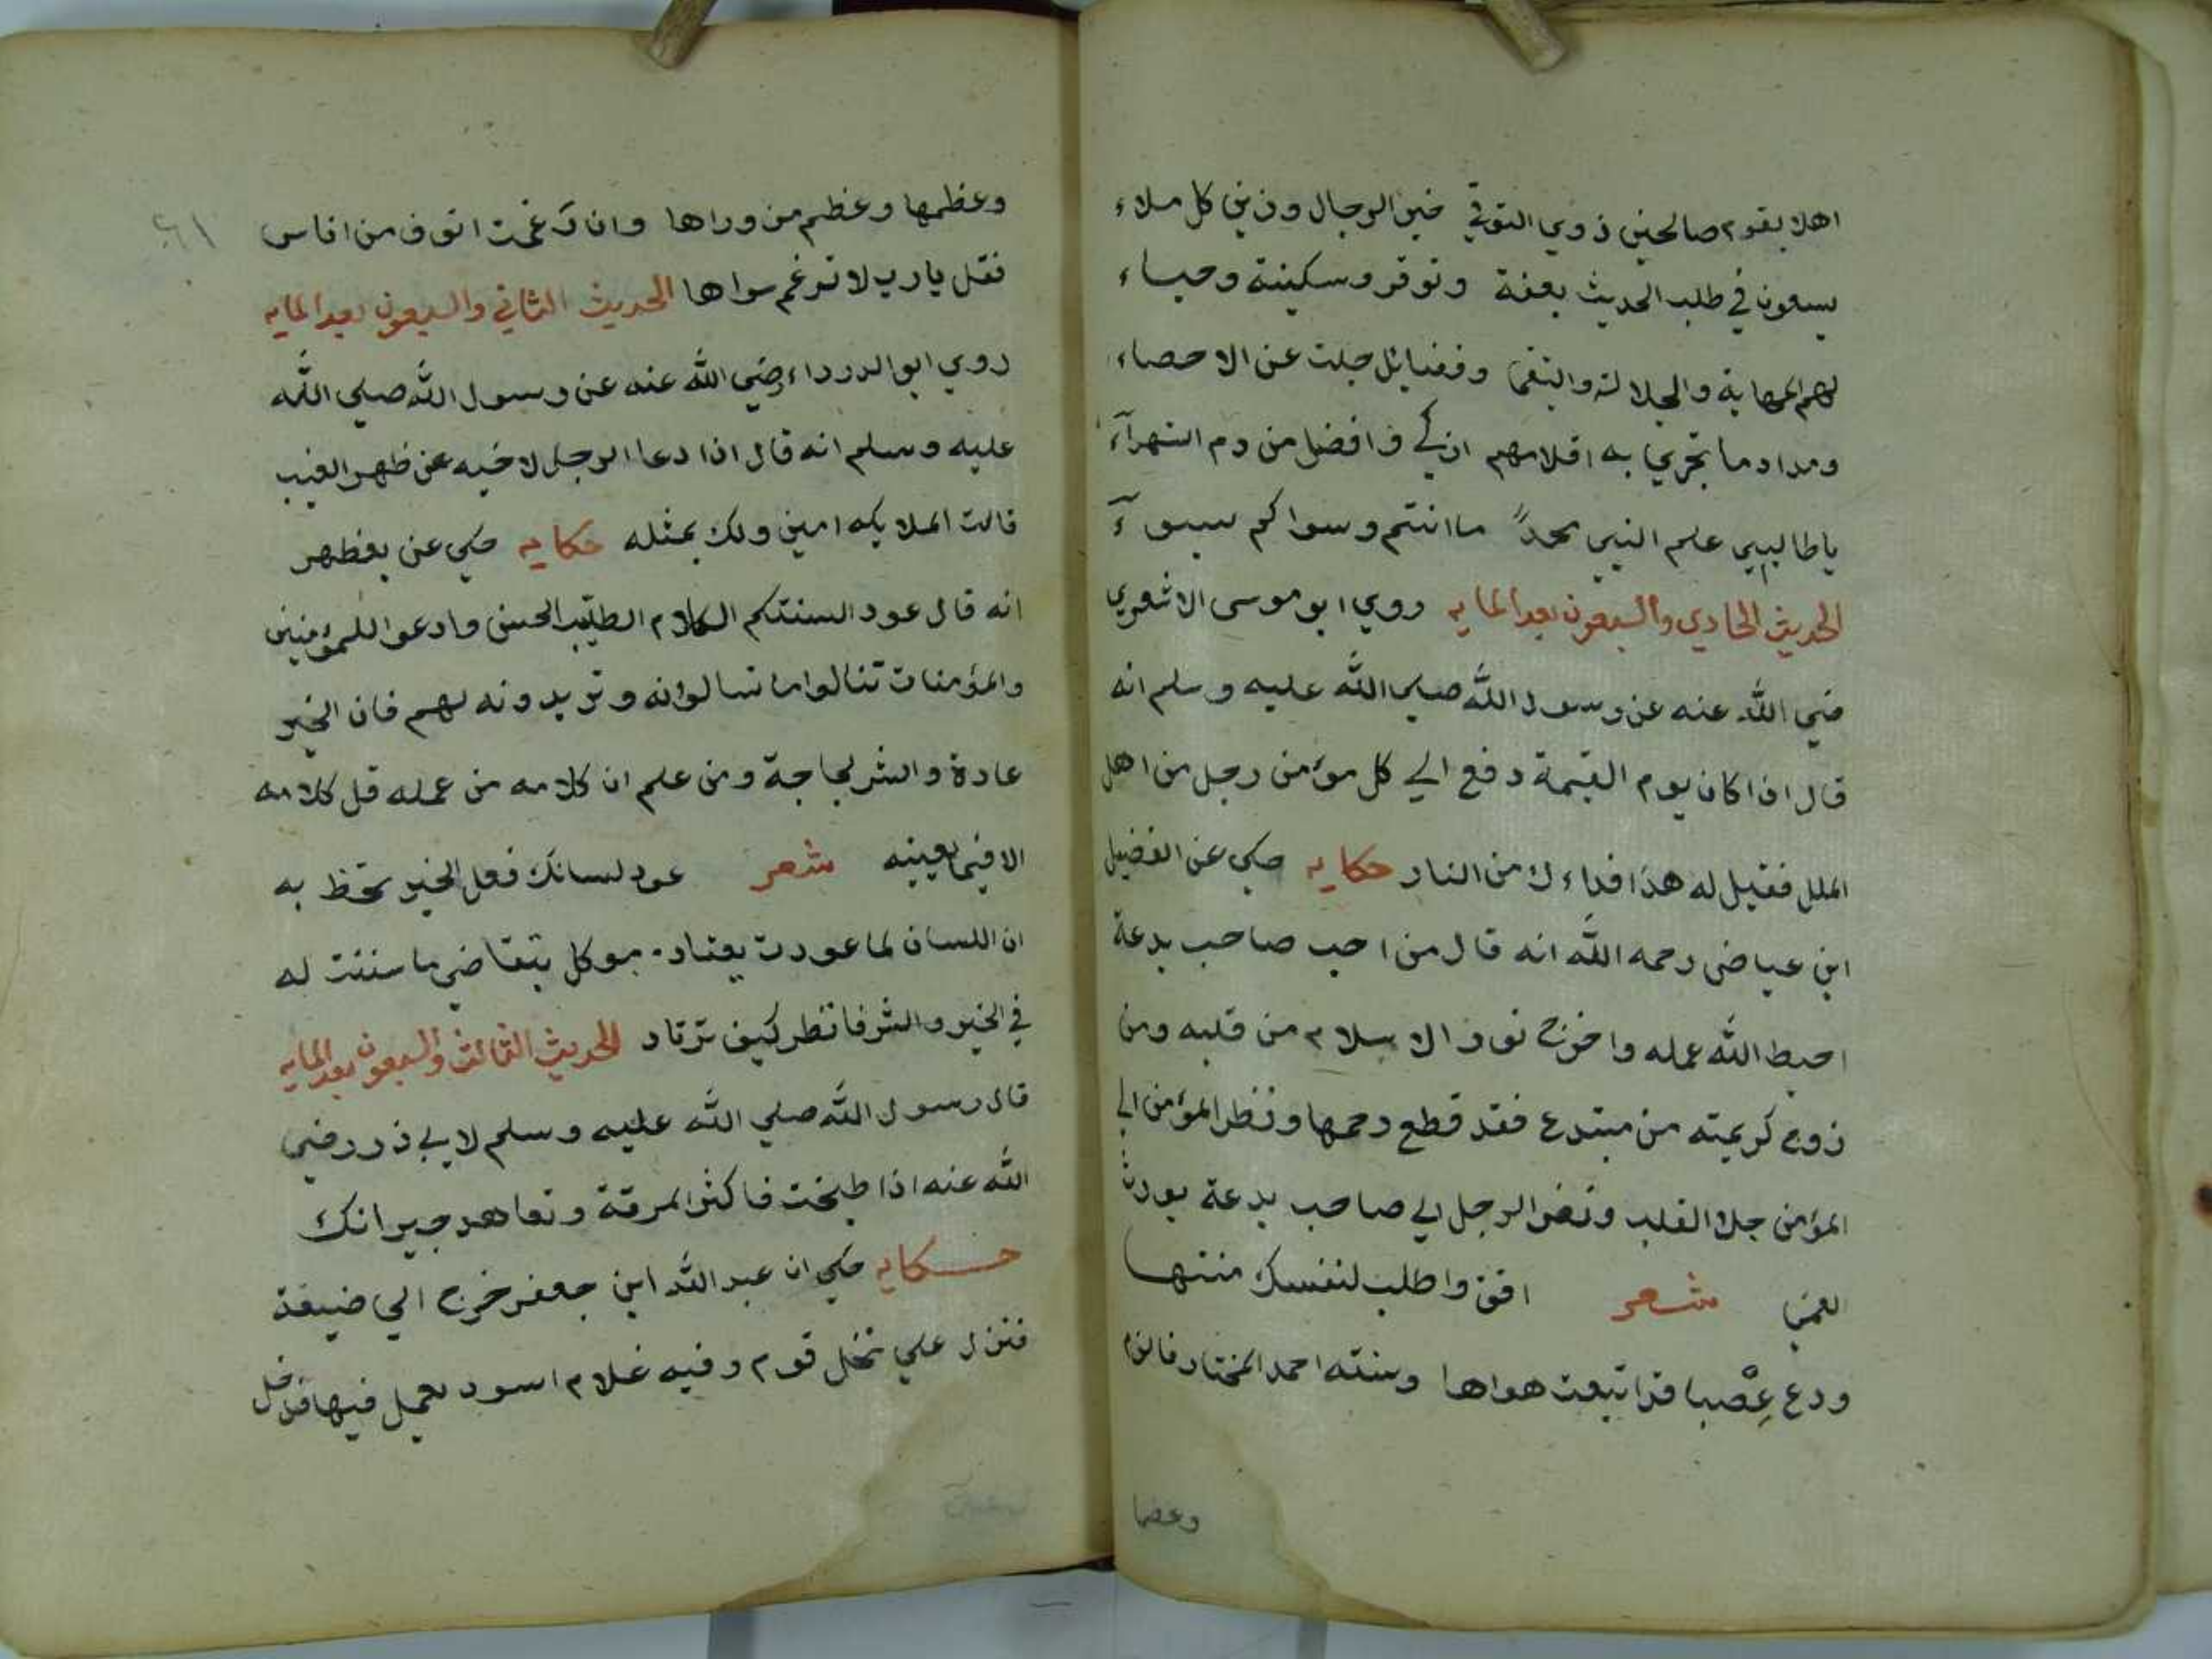 اهلا بقوم صالحين ذوي التوقي خير الرجال وزين كل ملاء
يسعون في طلب الحديث بعفة وتوقر وسكينة وحياء
لهم المهابة والجلالة والتقى وفضايل جلت عن الاحصاء
ومداد ما تجري به اقلامهم ازكي وافضل من دم الشهرآء
ياطالبيي علم النبي محمدً ما انتم وسواكم بسوآء
الحديث الحادي والسبعون بعد المايه روي ابو موسى الاشعري
ضي الله عنه عن رسول الله صلى الله عليه وسلم انه
قال اذا كان يوم القيمة دفع الي كل مؤمن رجل من اهل
الملل فقيل له هذا فداءك من النار حكايه حكي عن الفضيل
ابن عياض رحمه الله انه قال من احب صاحب بدعة
احبط الله عمله واخرج نور الاسلام من قلبه ومن
زوج كريمته من مبتدع فقد قطع رحمها ونظر المؤمن الي
المؤمن جلا القلب ونضر الرجل الي صاحب بدعة يورث
العمى شعر افق واطلب لنفسك منتها
ودع عصبا قد اتبعت هواها وسنته احمد المختار فالزم
وعضما
٦١
وعظمها وعظم من وراها وان رغمت انوف من اناس
فقل يارب لا ترغم سواها الحديث الثاني والسبعون بعد المايه
روي ابو الدرداء رضي الله عنه عن رسول الله صلي الله
عليه وسلم انه قال اذا دعا الرجل لاخيه عن ظهر الغيب
قالت الملايكه امين ولك بمثله حكايه حكي عن بعظهر
انه قال عود السنتكم الكلام الطيب الحسن وادعوا للمؤمنين
والمؤمنات تنالوا ما تسالوانه وتريدونه لهم فان الخير
عادة والشر لجاجة ومن علم ان كلامه من عمله قل كلامه
الا فيما يعينيه شعر عود لسانك فعل الخير تحظ به
ان اللسان لما عودت يعتاد. موكل يتقاضي ما سننت له
في الخير والشر فانظر كيف ترتاد الحديث الثالث والسبعون بعد المايه
قال رسول الله صلي الله عليه وسلم لابي ذر رضي
الله عنه اذا طبخت فاكثر المرقة وتعاهد جيرانك
حكايه حكي ان عبد الله ابن جعفر خرج الي ضيعة
فنزل علي نخل قوم وفيه غلام اسود يعمل فيها فدخل